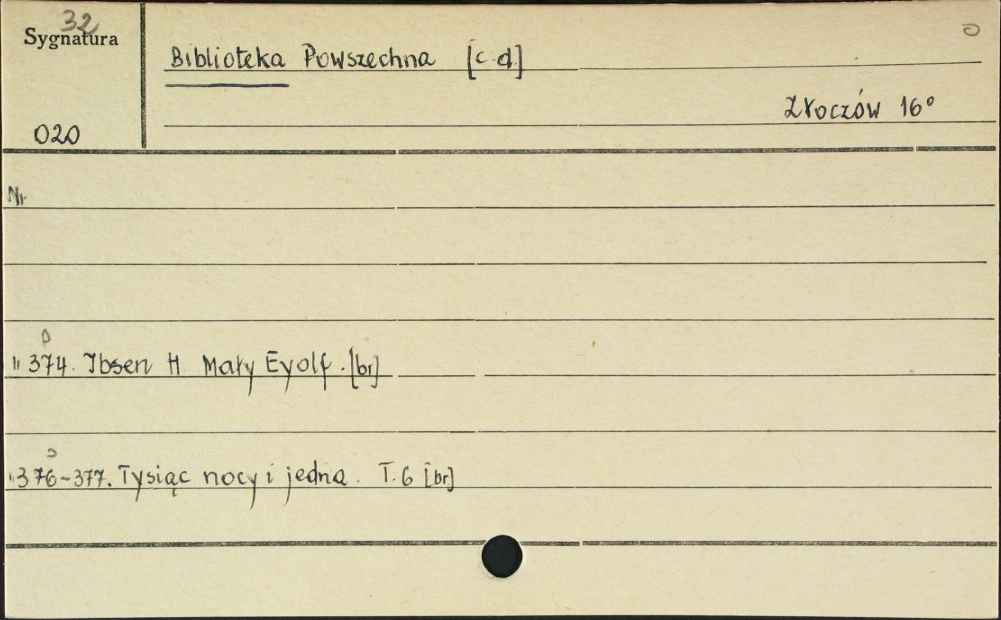 32
Sygnatura
Biblioteka Powszechna [c.d.]
Złoczów 16°
020
Nr
" 374. Ibsen H. Mały Eyolf. [br]
" 376-377. Tysiąc nocy i jedna. T. 6 [br]